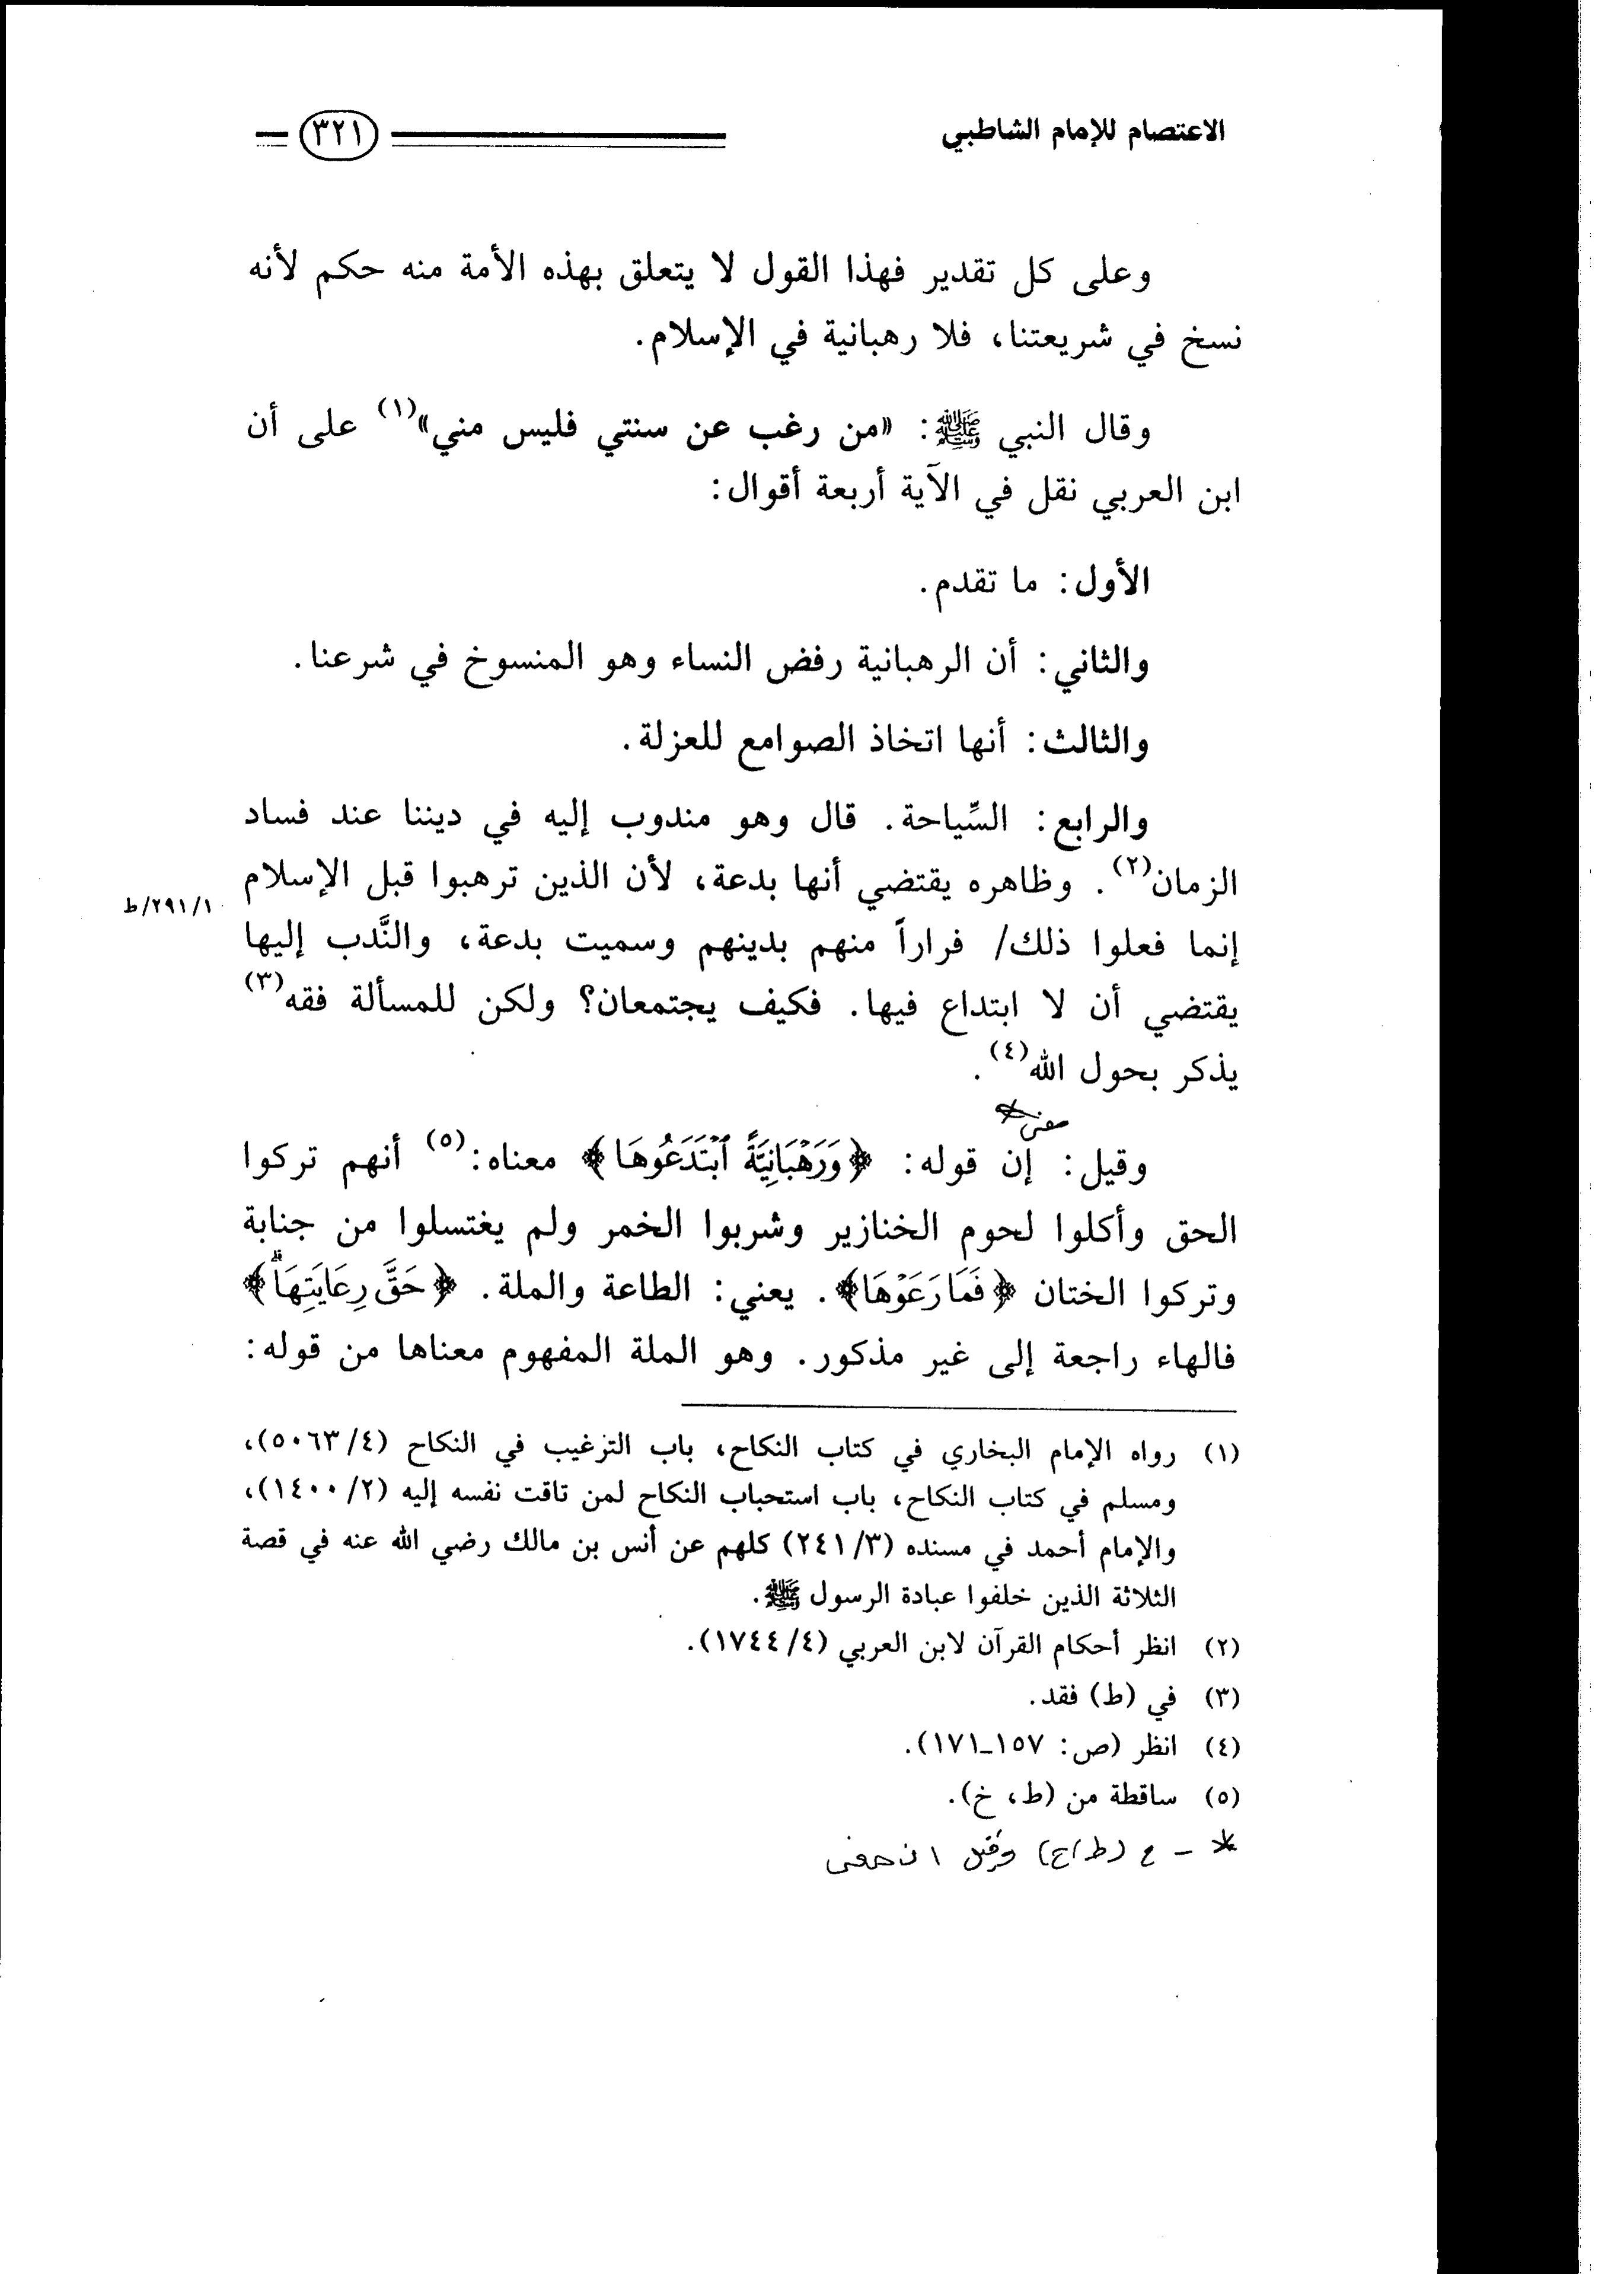 الاعتصام للإمام الشاطبي
٣٢١
وعلى كل تقدير فهذا القول لا يتعلق بهذه الأمة منه حكم لأنه
نسخ في شريعتنا، فلا رهبانية في الإسلام.
وقال النبي ﷺ: «من رغب عن سنتي فليس مني»(١) على أن
ابن العربي نقل في الآية أربعة أقوال:
الأول: ما تقدم.
والثاني: أن الرهبانية رفض النساء وهو المنسوخ في شرعنا.
والثالث: أنها اتخاذ الصوامع للعزلة.
والرابع: السِّياحة. قال وهو مندوب إليه في ديننا عند فساد
الزمان(٢). وظاهره يقتضي أنها بدعة، لأن الذين ترهبوا قبل الإسلام
٢٩١/١/ط
إنما فعلوا ذلك/ فراراً منهم بدينهم وسميت بدعة، والنَّدب إليها
يقتضي أن لا ابتداع فيها. فكيف يجتمعان؟ ولكن للمسألة فقه(٣)
يذكر بحول الله(٤).
معنى*
وقيل: إن قوله: ﴿وَرَهْبَانِيَّةً ٱبْتَدَعُوهَا﴾ معناه:(٥) أنهم تركوا
الحق وأكلوا لحوم الخنازير وشربوا الخمر ولم يغتسلوا من جنابة
وتركوا الختان ﴿فَمَا رَعَوْهَا﴾. يعني: الطاعة والملة. ﴿حَقَّ رِعَايَتِهَا﴾
فالهاء راجعة إلى غير مذكور. وهو الملة المفهوم معناها من قوله:
(١) رواه الإمام البخاري في كتاب النكاح، باب الترغيب في النكاح (٥٠٦٣/٤)،
ومسلم في كتاب النكاح، باب استحباب النكاح لمن تاقت نفسه إليه (١٤٠٠/٢)،
والإمام أحمد في مسنده (٢٤١/٣) كلهم عن أنس بن مالك رضي الله عنه في قصة
الثلاثة الذين خلفوا عبادة الرسول ﷺ.
(٢) انظر أحكام القرآن لابن العربي (١٧٤٤/٤).
(٣) في (ط) فقد.
(٤) انظر (ص: ١٥٧ـ١٧١).
(٥) ساقطة من (ط، خ).
* - وقيل ان معنى